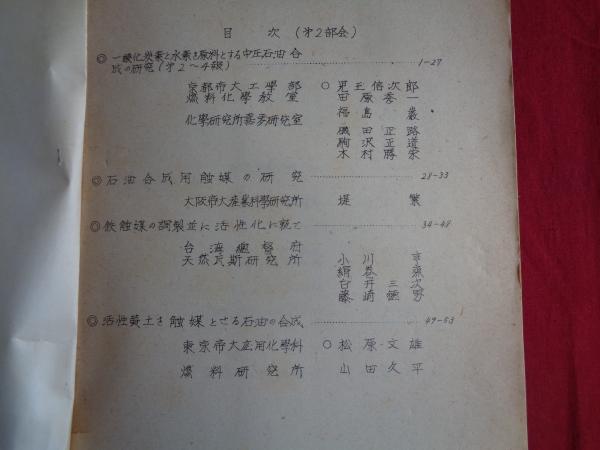 目 次 (第2部会)
◎ 一酸化炭素と水素を原料とする中圧石油合
成の研究(第2〜4報) 1-27
京都帝大工學部 ○児玉信次郎
燃料化學教室 田原秀一
福島 巌
化學研究所喜多研究室
磯田正路
駒沢正道
木村勝栄
◎石油合成用触媒の研究 28-33
大阪帝大産業科學研究所 堤 繁
◎鉄触媒の調製並に活性化に就て 34-48
台湾總督府
天然瓦斯研究所 小川 亨
臼井三次
藤崎 男
◎活性黄土を触媒とせる石油の合成 49-53
東京帝大応用化學科 ○松原文雄
燃料研究所 山田久平